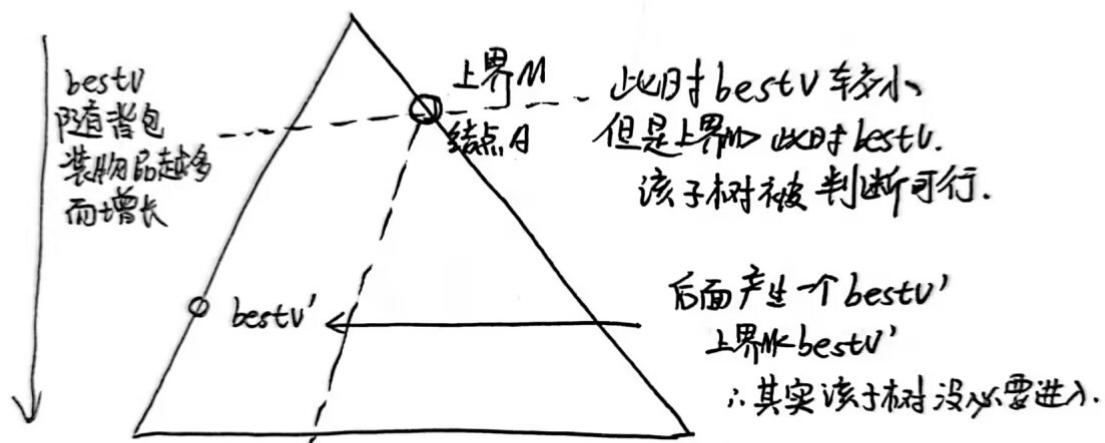 bestv
随背包
装物品越多
而增长
上界M
结点A
此时bestv较小
但是上界M>此时bestv.
该子树被判断可行.
bestv'
后面产生一个bestv'
上界M<bestv'
∴其实该子树没必要进入.